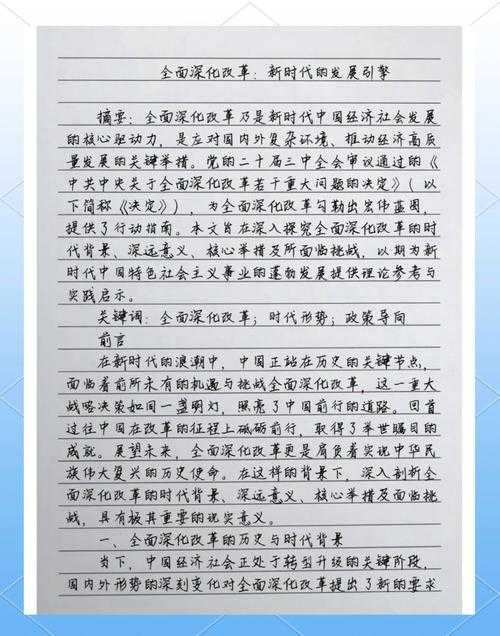 全面深化改革：新时代的发展引擎
摘要：全面深化改革乃是新时代中国经济社会发展
的核心驱动力，是应对国内外复杂环境、推动经济高质
量发展的关键举措。党的二十届三中全会审议通过的《
中共中央关于全面深化改革若干重大问题的决定》（以
下简称《决定》），为全面深化改革勾勒出宏伟蓝图，
提供了行动指南。本文旨在深入探究全面深化改革的时
代背景、深远意义、核心举措及所面临挑战，以期为新
时代中国特色社会主义事业的蓬勃发展提供理论参考与
实践启示。
关键词：全面深化改革；时代形势；政策导向
前言
在新时代的浪潮中，中国正站在历史的关键节点，
面临着前所未有的机遇与挑战全面深化改革，这一重大
战略决策如同一盏明灯，照亮了中国前行的道路。回首
过往中国在改革的征程上砥砺前行，取得了举世瞩目的
成就。展望未来，全面深化改革更是肩负着实现中华民
族伟大复兴的历史使命。在这样的背景下，深入剖析全
面深化改革的时代背景、深远意义、核心举措及面临挑
战，具有极其重要的现实意义。
一、全面深化改革的历史与时代背景
当下，中国经济社会正处于转型升级的关键阶段，
国内外形势的深刻变化对全面深化改革提出了新的要求